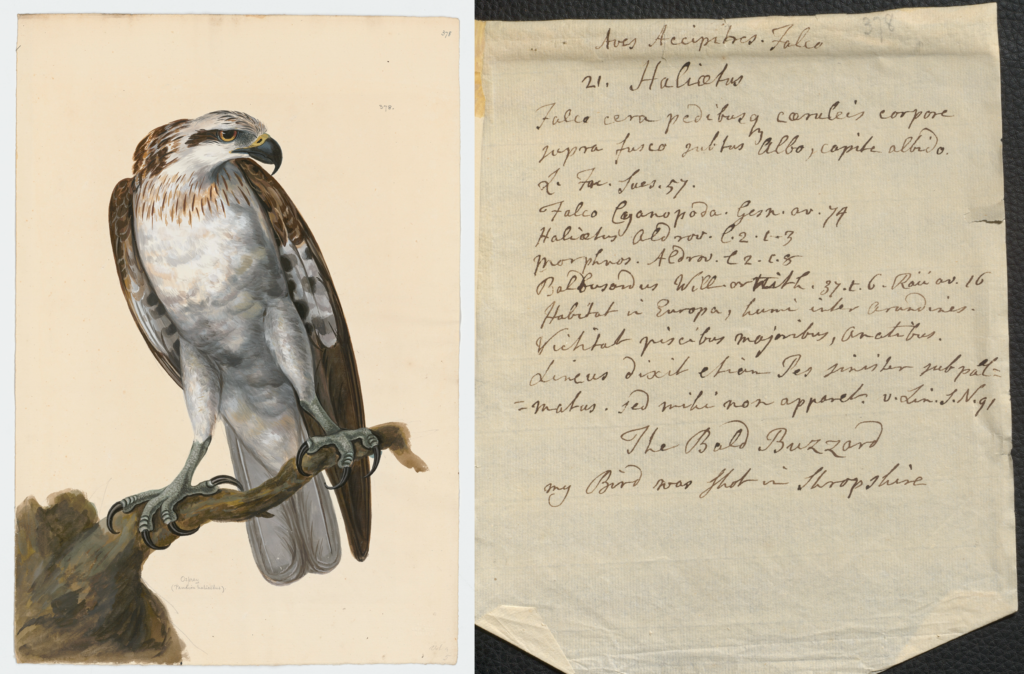 378.
Osprey
378
Aves Accipitres. Falco
21. Haliætus
Falco cera pedibusq cæruleis corpore
supra fusco subtus Albo, capite albido.
L. Fn. Sues. 57.
Falco Cyanopoda. Gesn. av. 74
Haliætus Aldrov. l. 2. t. 3
morphnos. Aldrov. l 2. t. 8
Balbusardus Will ornith. 37. t. 6. Raii av. 16
Habitat in Europa, humi inter Arundines.
Victitat piscibus majoribus, Anatibus.
Lineus dixit etiam Pes sinister subpal=
=matus. sed mihi non apparet. v. Lin. S. N. 91
The Bald Buzzard
my Bird was shot in Shropshire